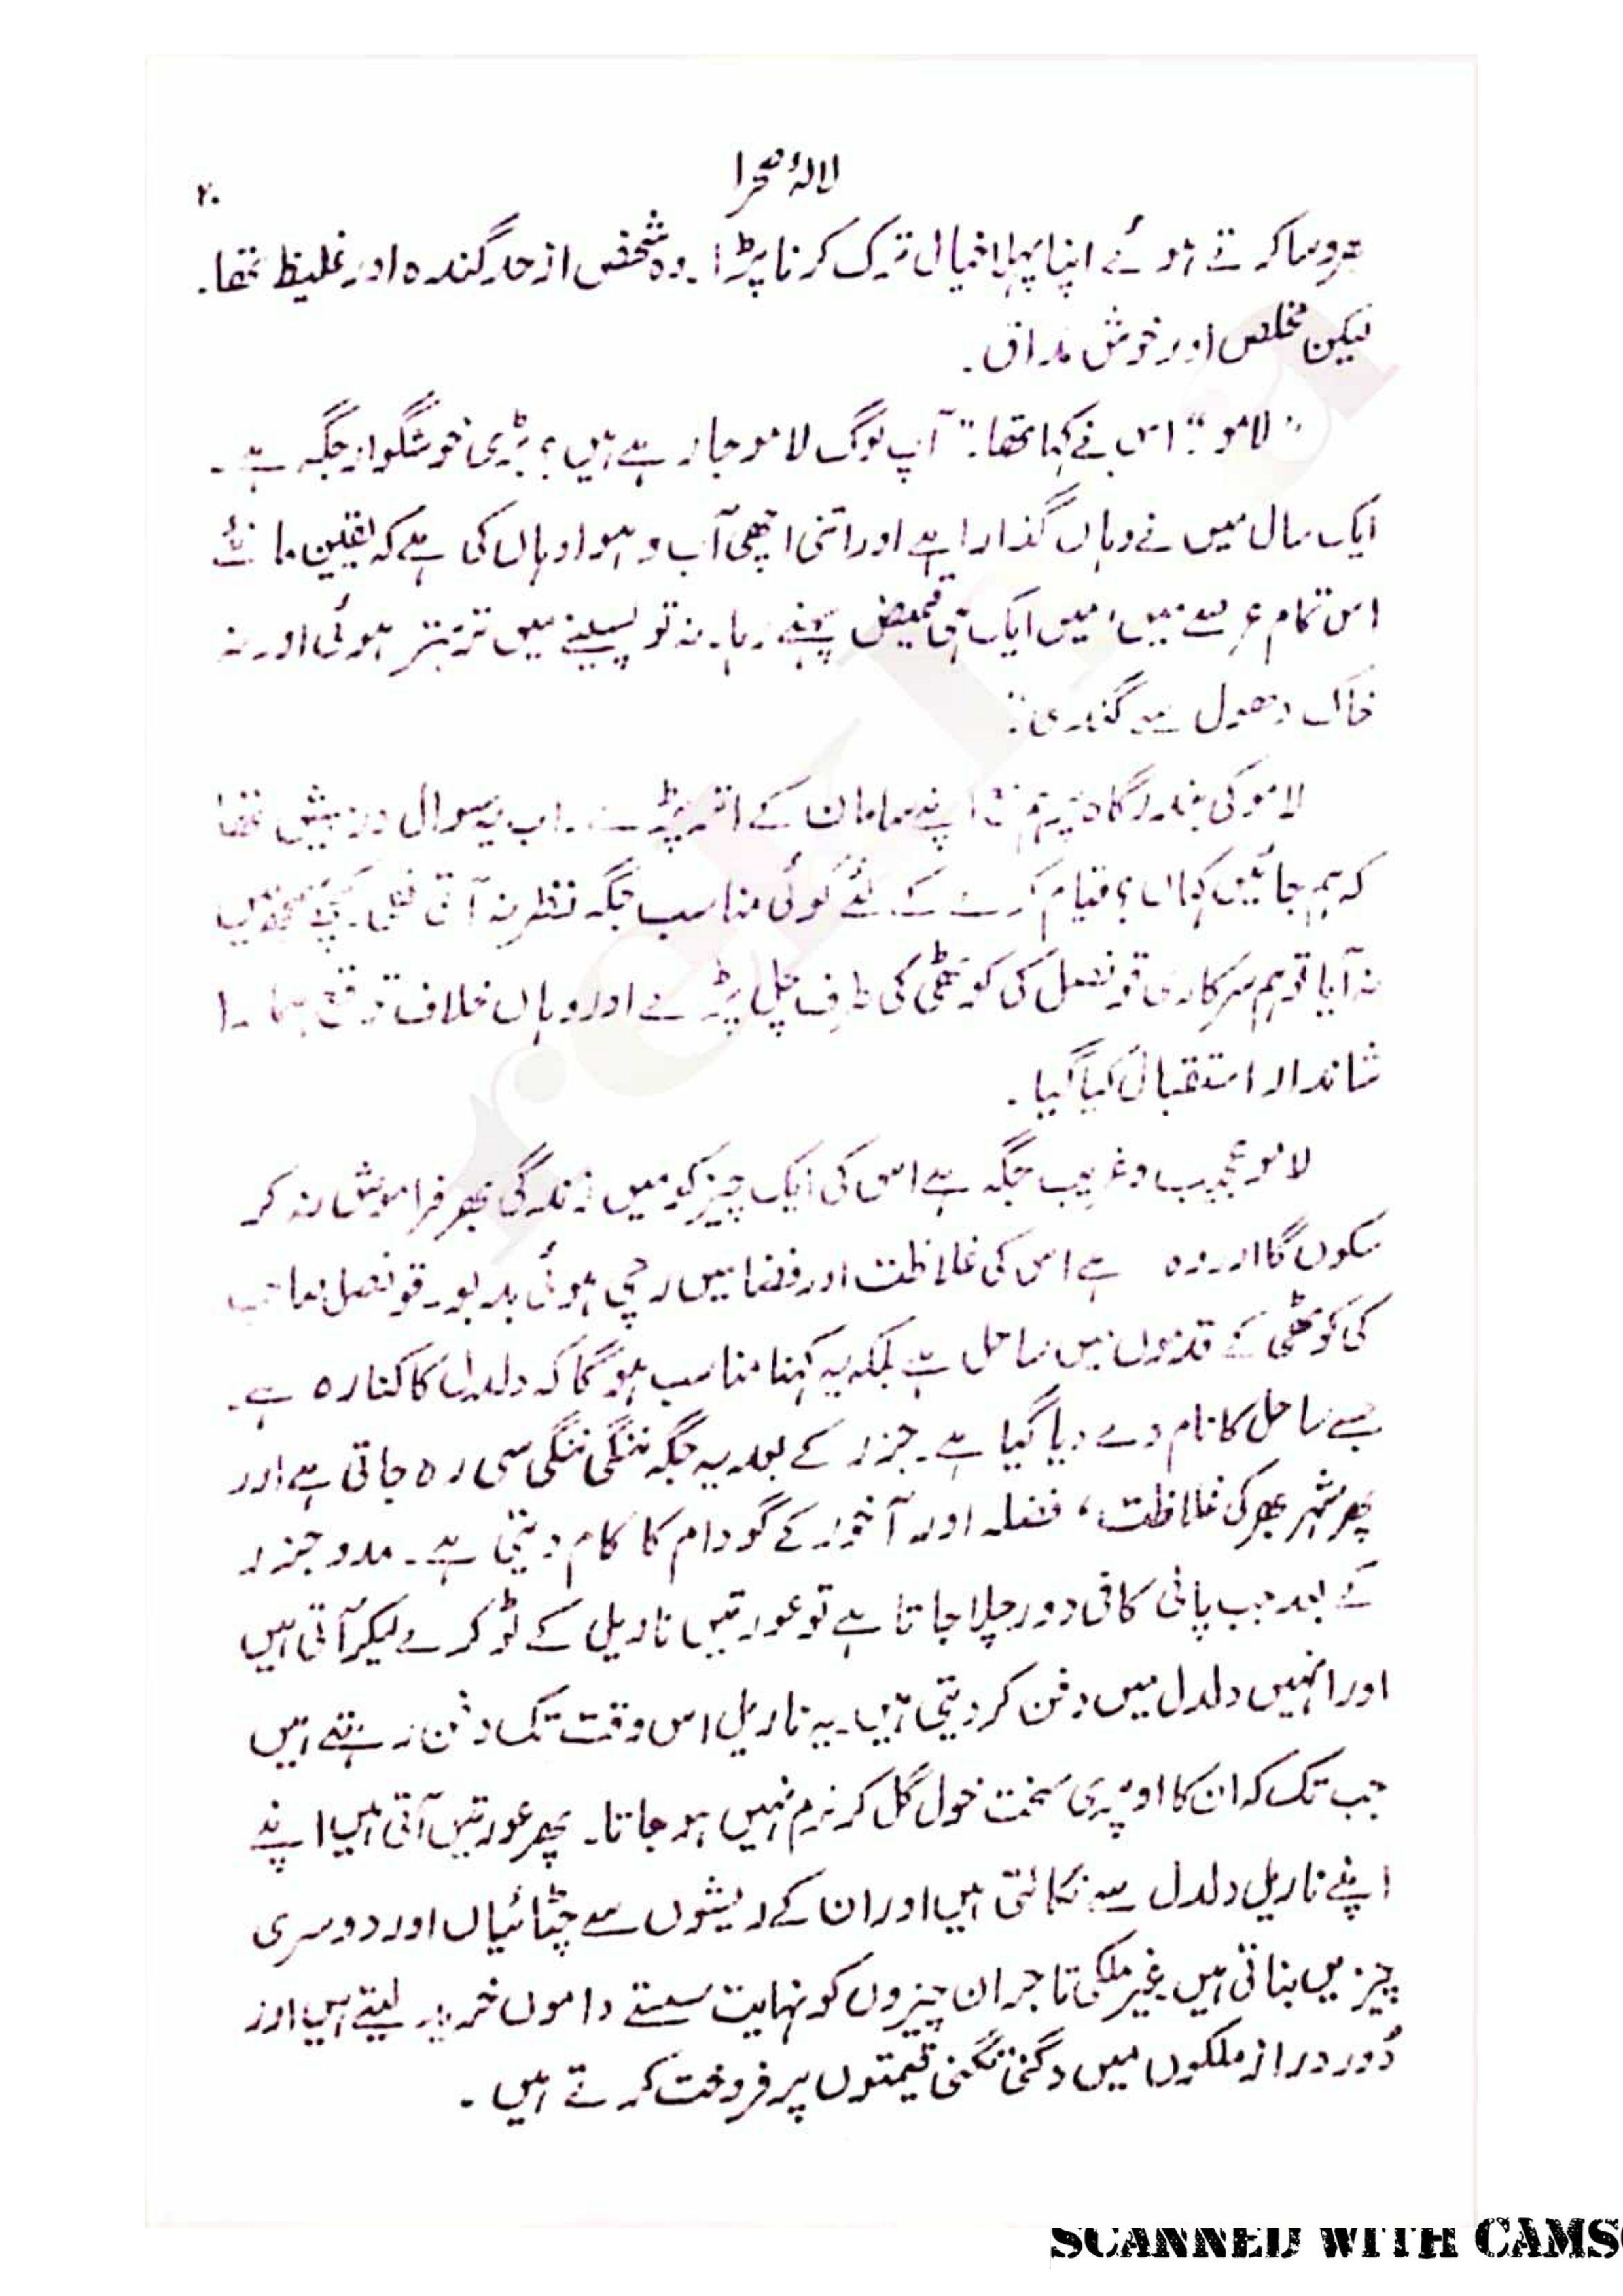 لالۂ صحرا
۲۰
بھروسا کرتے ہوئے اپنا پہلا خیال ترک کرنا پڑا۔ وہ شخص از حد گندہ اور غلیظ تھا۔
لیکن مخلص اور خوش مذاق۔
"لامو" اس نے کہا تھا۔ "آپ لوگ لامو جا رہے ہیں؟ بڑی خوشگوار جگہ ہے۔
ایک سال میں نے وہاں گذارا ہے اور اتنی اچھی آب و ہوا وہاں کی ہے کہ یقین مانئے
اس تمام عرصے میں، میں ایک ہی قمیض پہنے رہا۔ نہ تو پسینے میں تربتر ہوئی اور نہ
خاک دھول سے گندی"۔
لامو کی بندرگاہ پر ہم مع اپنے سامان کے اتر پڑے۔ اب یہ سوال درپیش تھا
کہ ہم جائیں کہاں؟ قیام کرنے کے لئے کوئی مناسب جگہ نظر نہ آتی تھی۔ کچھ سمجھ میں
نہ آیا تو ہم سرکاری قونصل کی کوٹھی کی طرف چل پڑے اور وہاں خلاف توقع ہمارا
شاندار استقبال کیا گیا۔
لامو عجیب و غریب جگہ ہے اس کی ایک چیز کو میں زندگی بھر فراموش نہ کر
سکوں گا اور وہ ہے اس کی غلاظت اور فضا میں رچی ہوئی بدبو۔ قونصل صاحب
کی کوٹھی کے قدموں میں ساحل ہے بلکہ یہ کہنا مناسب ہو گا کہ دلدل کا کنارہ ہے۔
جسے ساحل کا نام دے دیا گیا ہے۔ جزر کے بعد یہ جگہ ننگی ننگی سی رہ جاتی ہے اور
پھر شہر بھر کی غلاظت، فضلہ اور آخور کے گودام کا کام دیتی ہے۔ مدوجزر
کے بعد جب پانی کافی دور چلا جاتا ہے تو عورتیں ناریل کے ٹوکرے لیکر آتی ہیں
اور انہیں دلدل میں دفن کر دیتی ہیں۔ یہ ناریل اس وقت تک دفن رہتے ہیں
جب تک کہ ان کا اوپری سخت خول گل کر نرم نہیں ہو جاتا۔ پھر عورتیں آتی ہیں اپنے
اپنے ناریل دلدل سے نکالتی ہیں اور ان کے ریشوں سے چٹائیاں اور دوسری
چیزیں بناتی ہیں غیر ملکی تاجر ان چیزوں کو نہایت سستے داموں خرید لیتے ہیں اور
دُور دراز ملکوں میں دگنی تگنی قیمتوں پر فروخت کرتے ہیں۔
SCANNED WITH CAMS